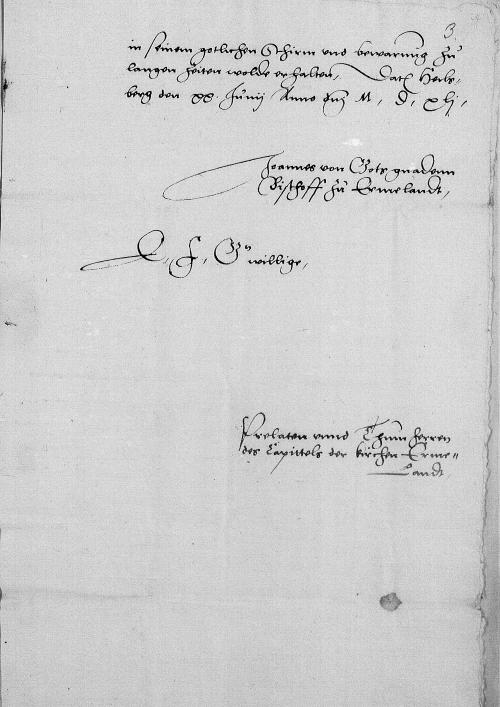 3.
in seinem gotlichen Schirm und bewarung zu
langen zeiten wolde erhalten, Datch Heils-
berg den xx. Junij Anno dnj M, d, xlj,
Joannes von Gots gnadenn
Bischoff zu Ermelandt,
E. f. Gn willige,
Prelaten unnd Thum herren
des Capittels der kirchen Erme-
landt